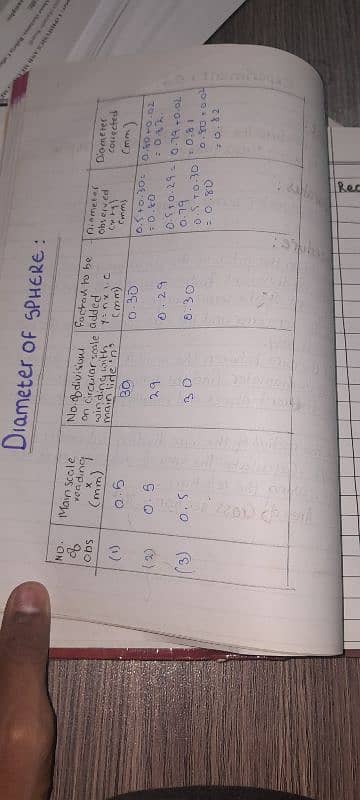 Diameter OF SPHERE :
NO. of obs
Main scale reading x (mm)
No. of divisions on circular scale with main line 'n'
Fraction to be added y = n x L.C (mm)
Diameter observed (x+y) (mm)
Diameter corrected (mm)
(1) 0.5 30 0.30 0.5+0.30= =0.80 0.80+0.02 =0.82
(2) 0.5 29 0.29 0.5+0.29= 0.79 0.79+0.02 =0.81
(3) 0.5 30 0.30 0.5+0.30 =0.80 0.80+0.02 =0.82
Rec